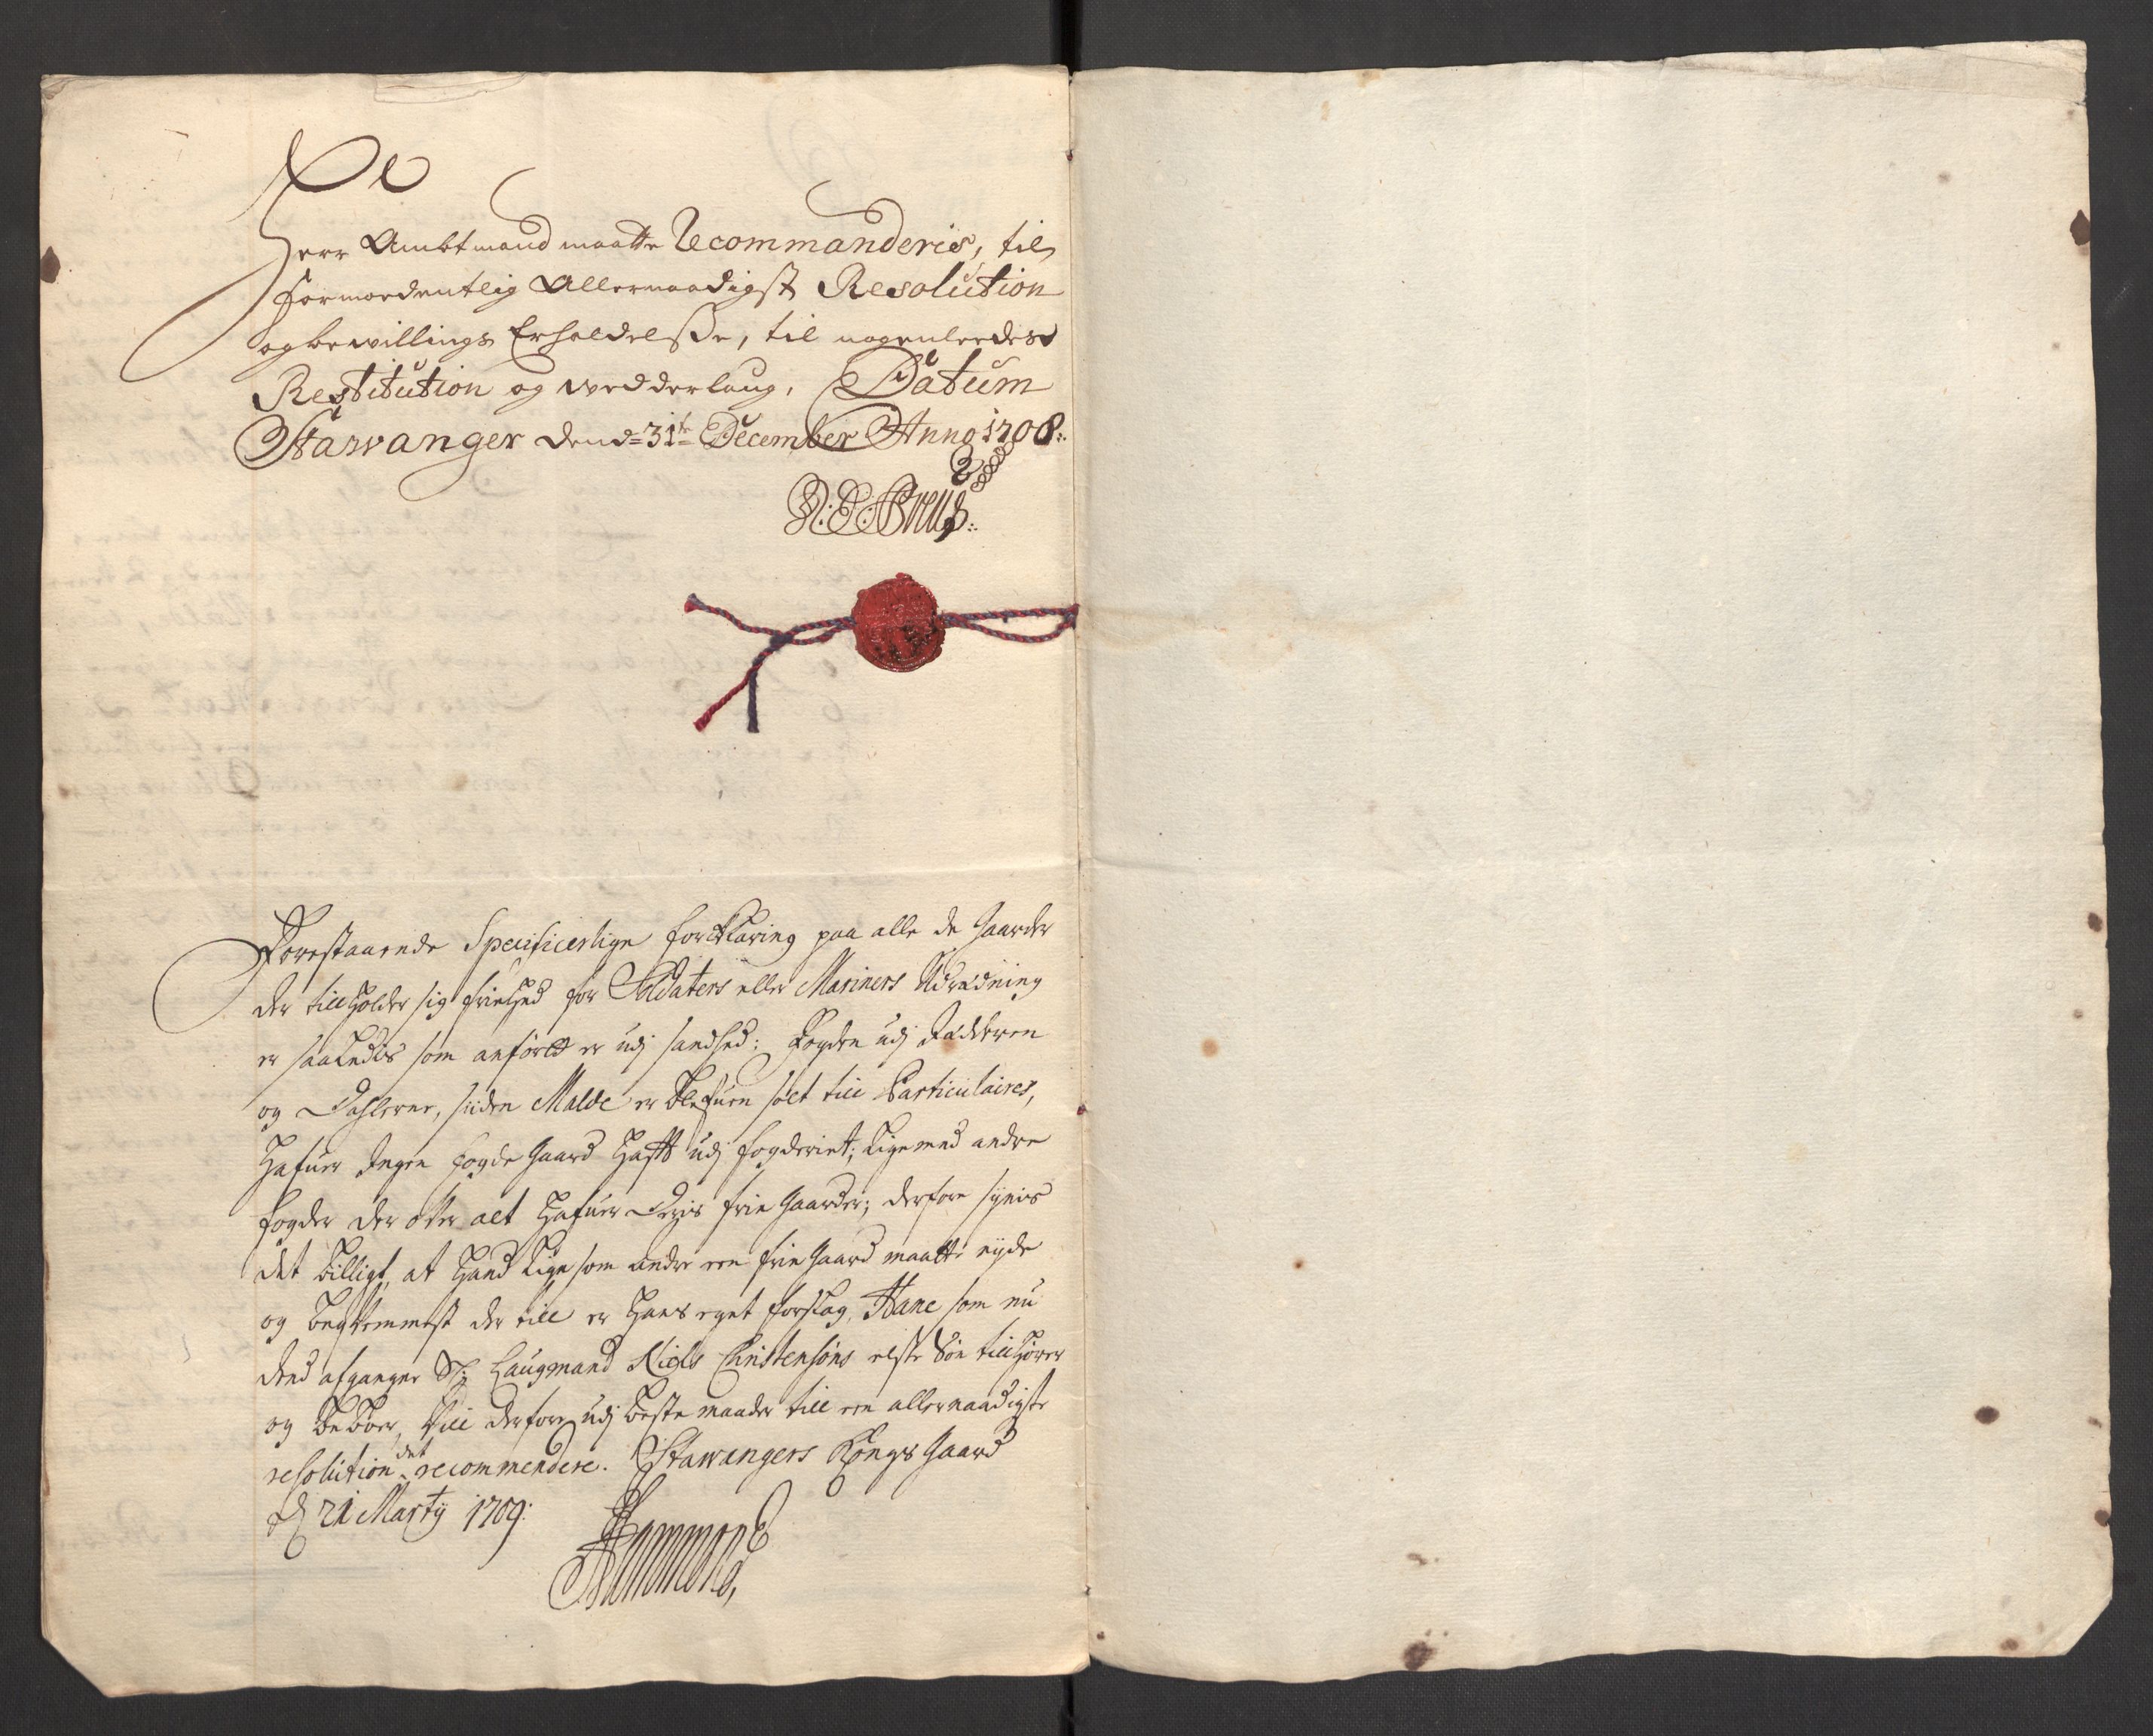 Herr Ambtmand maatte Recommanderis, til
formodentlig Allernaadigst Resolution
og bewillings Erholdelse, til nogenledes
Restitution og wedderlaug, Datum
Stawanger dend=31te December Anno 1708.
Forestaaende Specificerlige forklaring paa alle de Gaarder
der tillholder sig friehed for Soldaters eller Mariners Udredning
er saaledis som anfördt er udj sandhed: Fogden udj Jædderen
og Dahlerne, siiden Malde er blefuen solt till Particulaires,
Hafuer Ingen fogde Gaard Hafft udj fogderiet; Lige med andre
fogder der ofver alt Hafuer deris frie Gaarder; derfore siunis
det billigt, at Hand Lige som andre een frie Gaard maatte nyde
og beqvemmest der till er Hans eget forslag, Hane som nu
dend afgangne Sl: Laugmand Niels Christensöns elste Sön tillhörer
og beboer, Vill derfore udj beste maader till een allernaadigste
resolution det recommendere. Stawangers Kongs Gaard
d 21 Marty 1709:
Hammond,